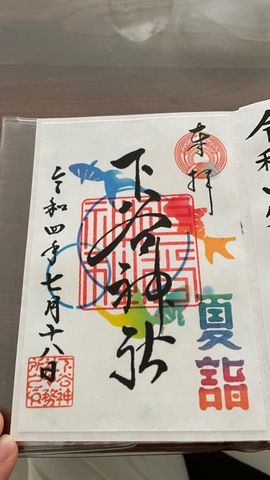 奉拝
夏詣
下谷神社
令和四年七月十八日
令和